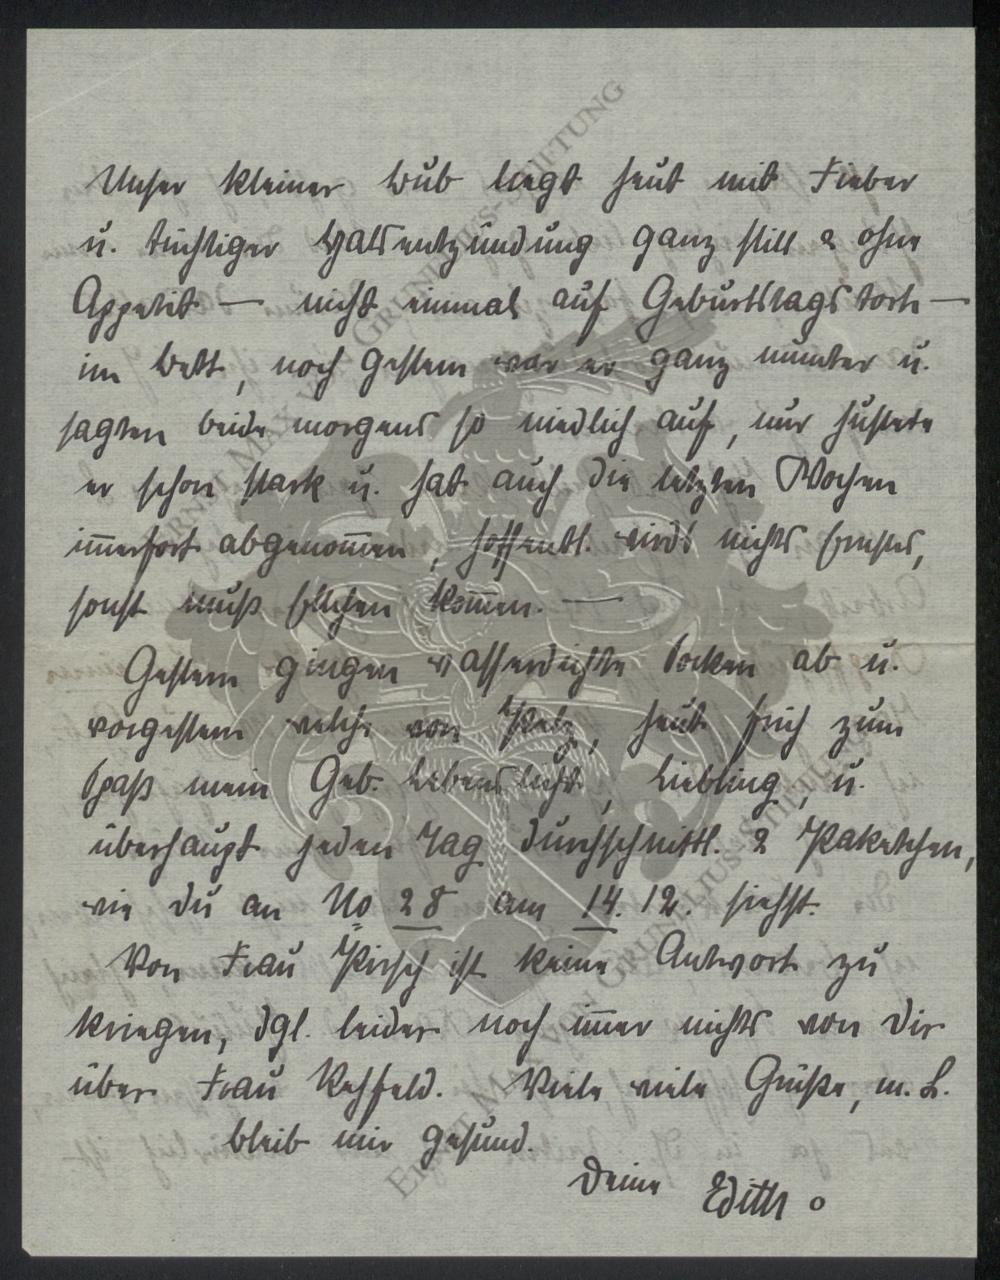 Unser kleiner Bub liegt heut mit Fieber
u. tüchtiger Halsentzündung ganz still & ohne
Appetit — nicht einmal auf Geburtstagstorte —
im Bett, noch gestern war er ganz munter u.
sagten beide morgens so niedlich auf, nur hustete
er schon stark u. hat auch die letzten Wochen
im̅erfort abgenom̅en, hoffentl. wirds nichts Ernstes,
sonst muß kom̅en. —
Gestern gingen wasserdichte Socken ab u.
vorgestern welche von Pelz, heut früh zum
Spaß mein Geb. Lebenslicht, Liebling, u.
überhaupt jeden Tag durchschnittl. 2 Paketchen,
wie du an No 28 am 14. 12. siehst.
Von Frau Pirsch ist keine Antwort zu
kriegen, dgl. leider noch im̅er nichts von dir
über Frau Rehfeld. Viele viele Grüße, m. L.
bleib mir gesund.
Deine Edith
ERNST MAX VON GRUNELIUS-STIFTUNG
ERNST MAX VON GRUNELIUS-STIFTUNG